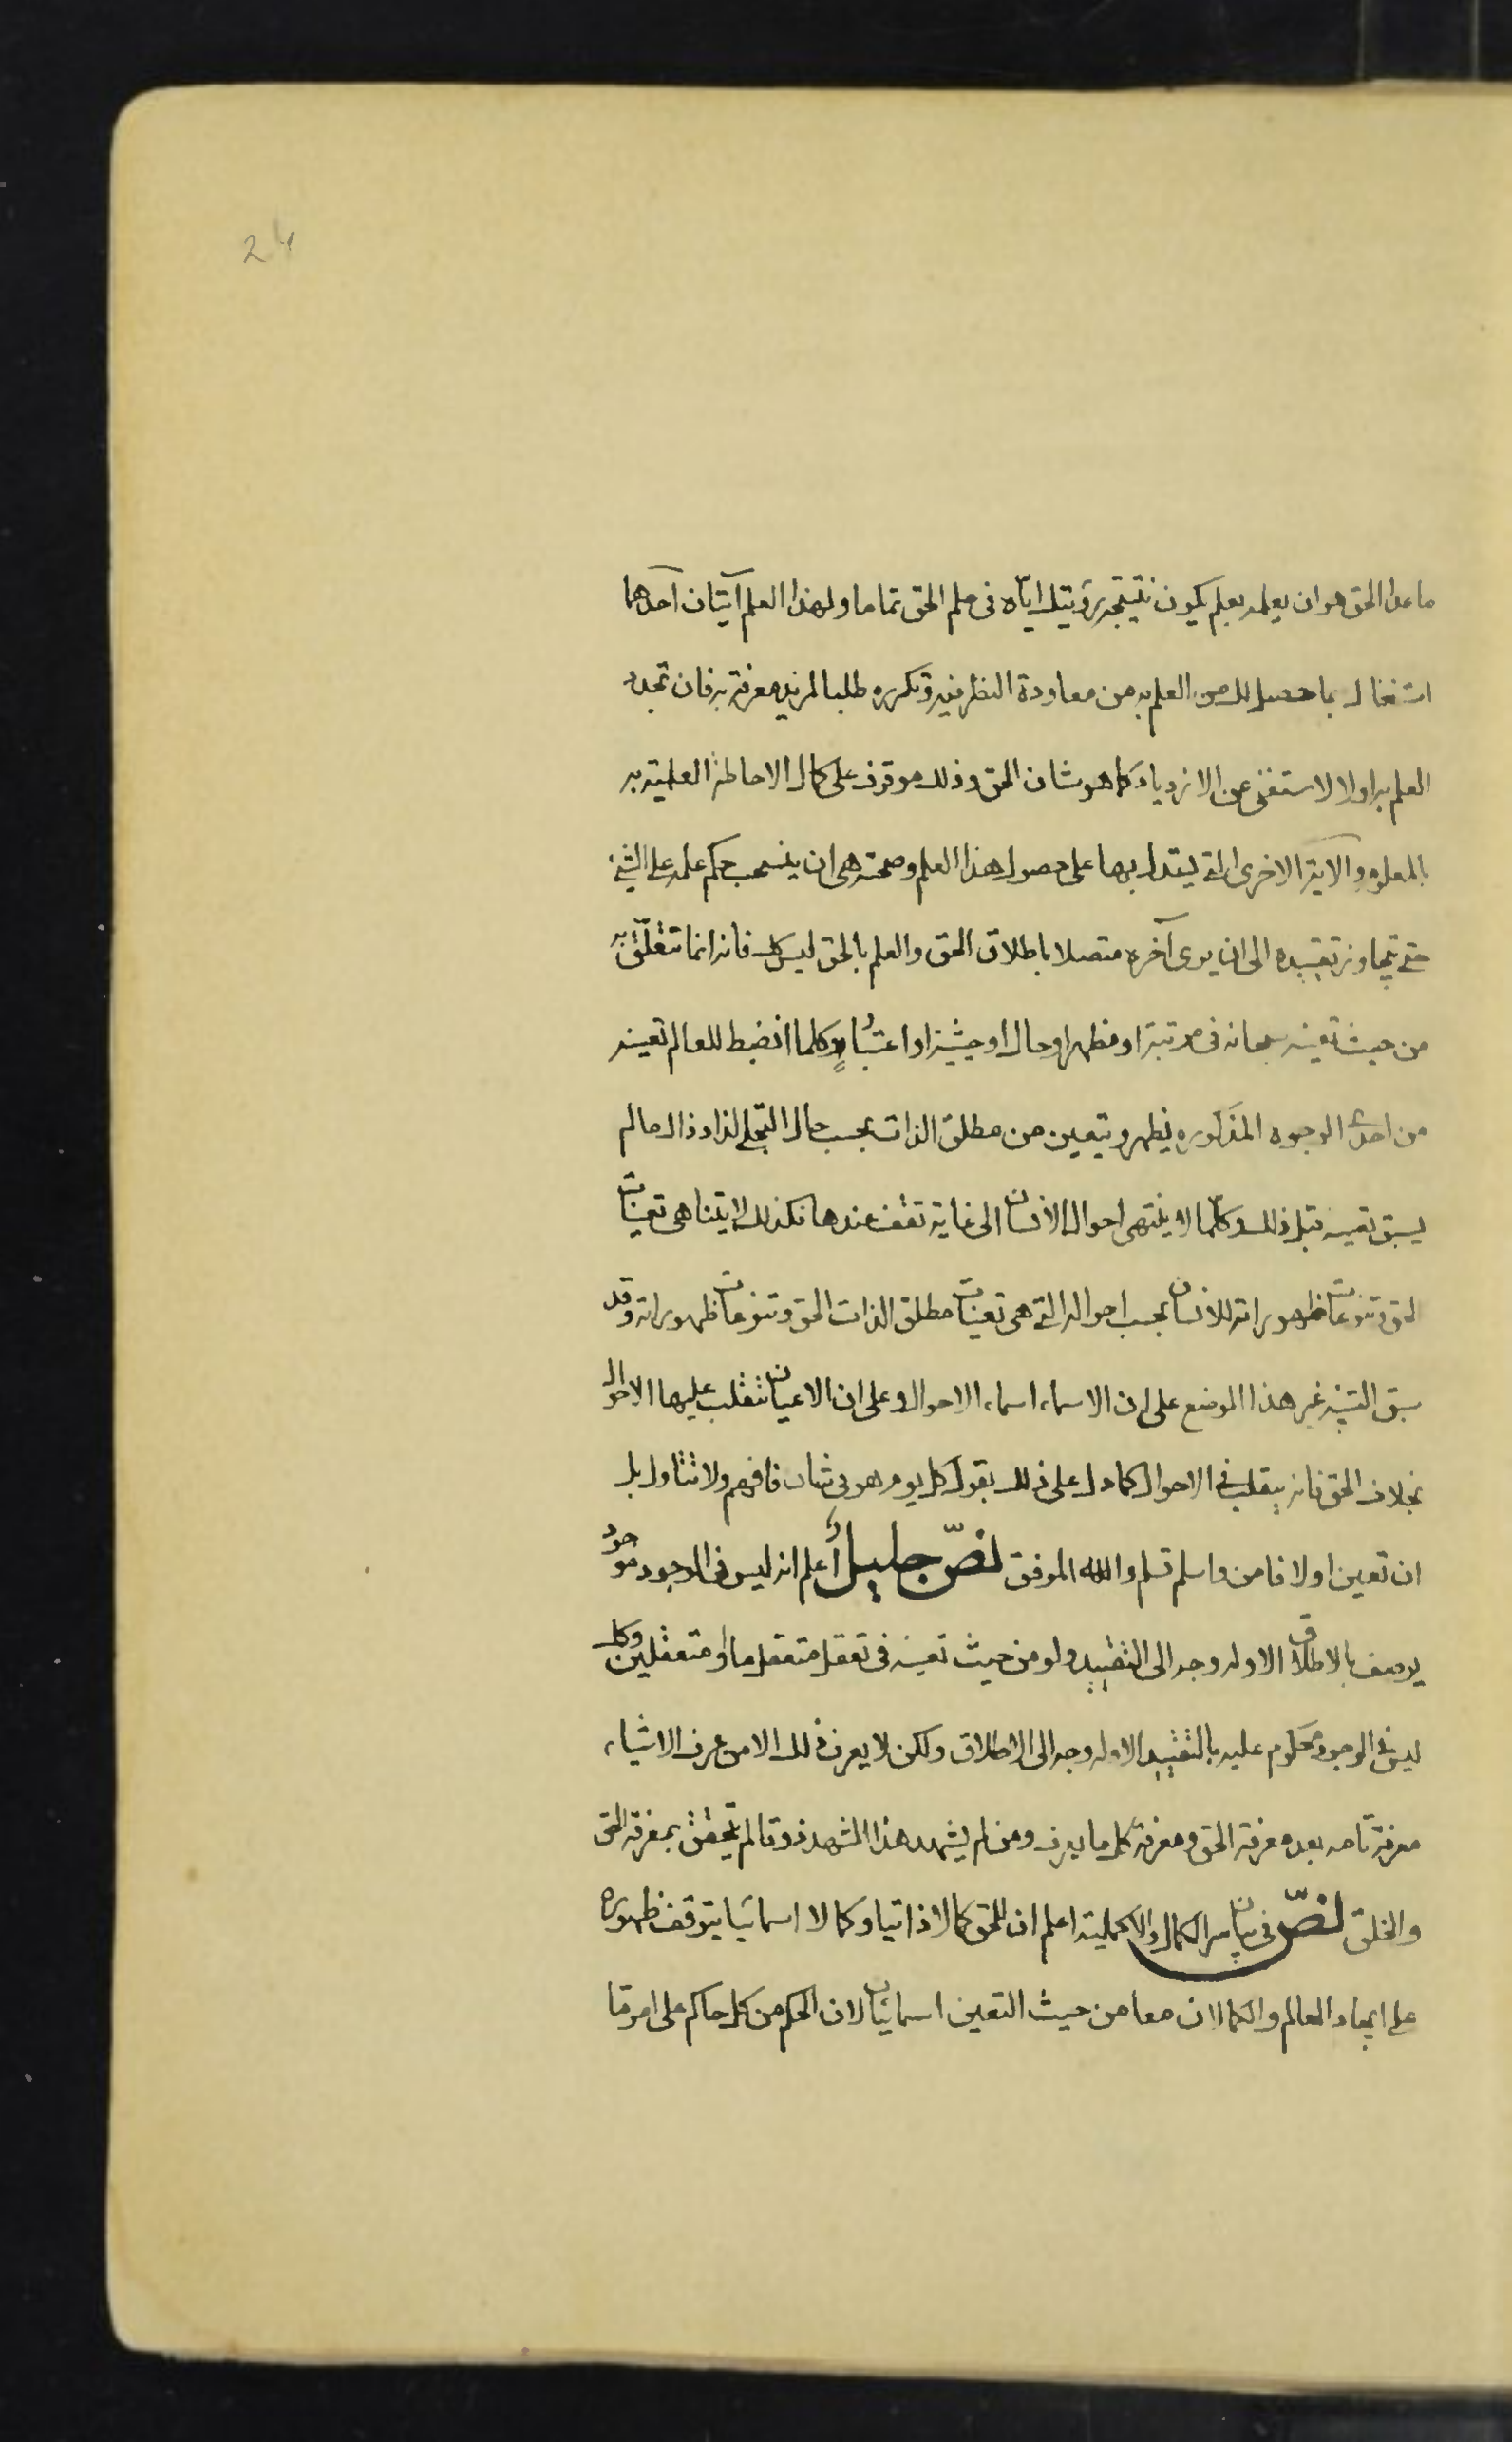 24
ما عدا الحق هو ان يعلمه بعلم يكون نتيجة رؤيتك اياه في علم الحق تماما ولهذا العلم آيتان احدهما
استغناؤك بما حصل لك من العلم به من معاودة النظر فيه وتكرره طلبا لمزيد معرفة به فان تجدد
العلم به اولا لاستغنى عن الازدياد كما هو شان الحق وذلك موقوف على كمال الاحاطة العلمية به
بالمعلوم والآية الاخرى التي يستدل بها على حصول هذا العلم وصحته هي ان ينسحب حكم علمه على الشيء
حتى يتجاوز تقييده الى ان يرى آخره متصلا باطلاق الحق والعلم بالحق ليس كذلك فانه انما تتعلق به
من حيث تعينه سبحانه في مرتبة او مظهر او حال او حيثية او اعتبار وكلما انضبط للعالم تعينه
من احدى الوجوه المذكورة يظهر ويتعين من مطلق الذات بحسب حال التجلي له اذ ذاك ما لم
يسبق تعينه قبل ذلك وكلما لا ينتهي احوال الانسان الى غاية تقف عندها فكذلك لا يتناهى تعينات
الحق وتنوعات ظهوراته للانسان بحسب احواله التي هي تعينات مطلق الذات الحق وتنوعات ظهوراته وقد
سبق التنبيه غير هذا الموضع على ان الاسماء اسماء الاحوال وعلى ان الاعيان تتقلب عليها الاحوال
بخلاف الحق فانه يتقلب في الاحوال كما دل على ذلك بقوله كل يوم هو في شان فافهم ولا تتاول بل
ان تعين اولا فامن واسلم تسلم والله الموفق نصّ جليل اعلم انه ليس في الوجود موجود
يوصف بالاطلاق الا وله وجه الى التقييد ولو من حيث تعينه في تعقل متعقل ما او متعقلين وكذلك
ليس في الوجود محكوم عليه بالتقييد الا وله وجه الى الاطلاق ولكن لا يعرف ذلك الا من عرف الاشياء
معرفة تامه بعد معرفة الحق ومعرفة كل ما يعرف ومن لم يشهد هذا المشهد ذوقا لم يتحقق بمعرفة الحق
والخلق نصّ في بيان سر الكمال والاكملية اعلم ان للحق كمالا ذاتيا وكمالا اسمائيا يتوقف ظهوره
على ايجاد العالم والكمالان معا من حيث التعين اسمائيان لان الحكم من كل حاكم على امر ما